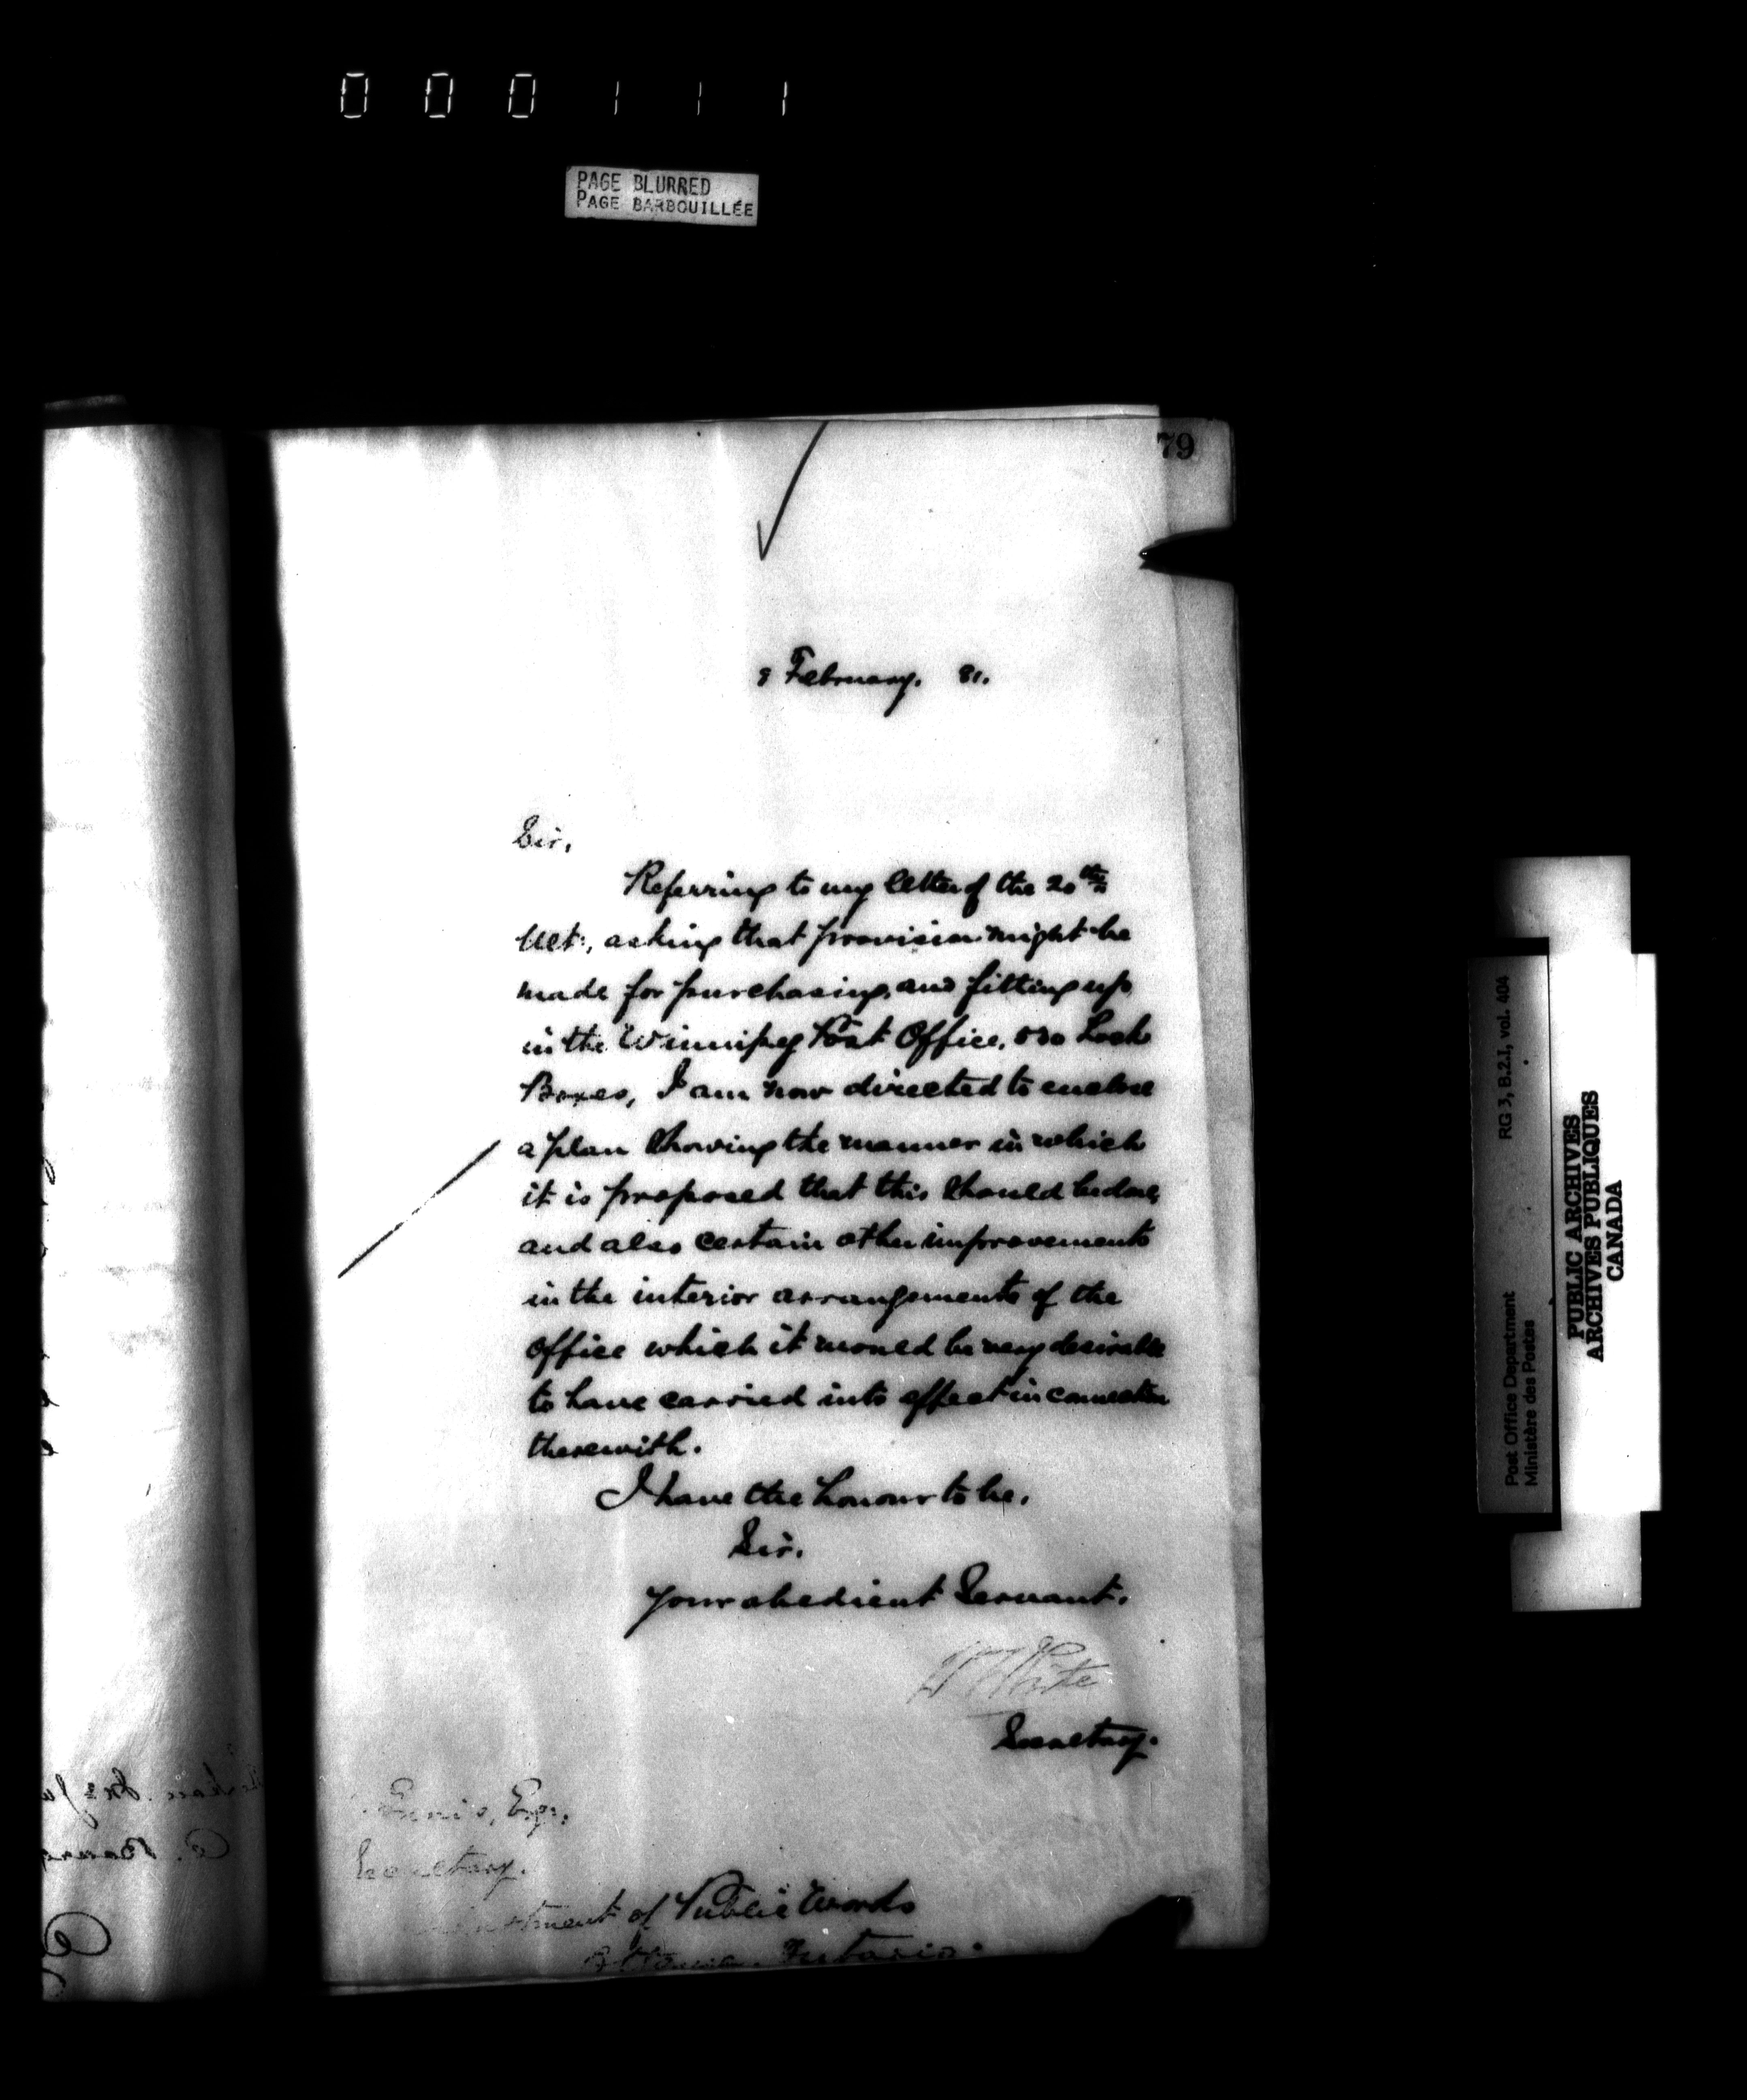 000111
PAGE BLURRED
PAGE BARBOUILLÉE
79
8 February. 81.
Sir,
Referring to my letter of the 20th
Ult:, asking that provision might be
made for purchasing, and fitting up
in the Winnipeg Post Office, Lock
Boxes, I am now directed to enclose
a plan Showing the manner in which
it is proposed that this Should be done,
and also certain other improvements
in the interior arrangements of the
office which it would be very desirable
to have carried into effect in connection
therewith.
I have the honour to be,
Sir.
Your obedient Servant.
White
Secretary.
Ennis, Esq.,
Secretary.
of Public Works
Ottawa. Ontario.
RG 3, B.2.I, vol. 404
Post Office Department
Ministère des Postes
PUBLIC ARCHIVES
ARCHIVES PUBLIQUES
CANADA